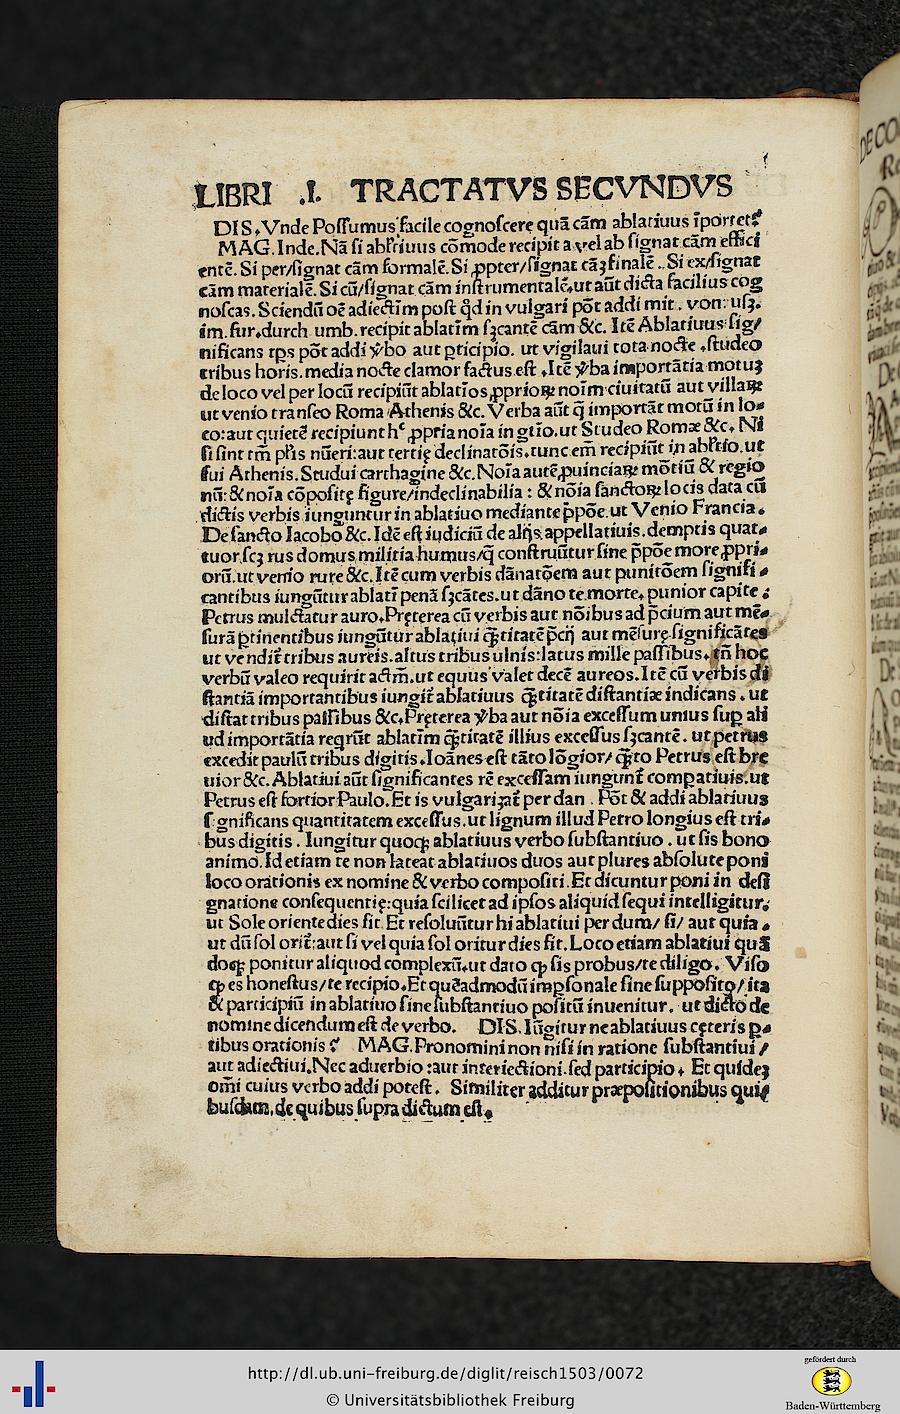 LIBRI .I. TRACTATVS SECVNDVS
DIS. Vnde Possumus facile cognoscere quā cām ablatiuus īportet?
MAG. Inde. Nā si abltiuus cōmode recipit a vel ab signat cām effici
entē. Si per/signat cām formalē. Si ꝓpter/signat cāꝫ finalē. Si ex/signat
cām materialē. Si cū/signat cām instrumentalē. ut aūt dicta facilius cog
noscas. Sciendū oē adiectīm post qd in vulgari pōt addi mit. von: usz.
im. fur. durch umb. recipit ablatīm sꝫcantē cām &c. Itē Ablatiuus sig/
nificans tps pōt addi v̄bo aut ꝑticipio. ut vigilaui tota nocte. studeo
tribus horis. media nocte clamor factus est. Itē v̄ba importātia motuꝫ
de loco vel per locū recipiūt ablatīos ꝓprioꝝ noīm ciuitatū aut villaꝝ
ut venio transeo Roma Athenis &c. Verba aūt q̄ importāt motū in lo-
co: aut quietē recipiunt hᶜ ꝓpria noīa in gtīo. ut Studeo Romæ &c. Ni
si sint tm̄ plīs nūeri: aut tertię declinatōis. tunc em̄ recipiūt in abltīo. ut
fui Athenis. Studui carthagine &c. Noīa autē ꝓuinciaꝝ mōtiū & regio
nū: & noīa cōpositę figure/indeclinabilia: & nōia sanctoꝝ locis data cū
dictis verbis iunguntur in ablatiuo mediante p̄pōe. ut Venio Francia.
De sancto Iacobo &c. Idē est iudiciū de alijs appellatiuis. demptis quat-
tuor scꝫ rus domus militia humus/q̄ construūtur sine p̄pōe more ꝓpri-
orū. ut venio rure &c. Itē cum verbis dānatōem aut punitōem signifi-
cantibus iungūtur ablatī penā sꝫcātes. ut dāno te morte. punior capite.
Petrus mulctatur auro. Pręterea cū verbis aut nōibus ad p̄cium aut mē-
surā ꝑtinentibus iungūtur ablatiui q̄titatē p̄cij aut mēsurę significātes
ut vendit̄ tribus aureis. altus tribus ulnis: latus mille passibus. tn̄ hoc
verbū valeo requirit actm̄. ut equus valet decē aureos. Itē cū verbis di
stantiā importantibus iungit̄ ablatiuus q̄titatē distantiæ indicans. ut
distat tribus passibus &c. Pręterea v̄ba aut nōia excessum unius sup ali
ud importātia reqrūt ablatīm q̄titatē illius excessus sꝫcantē. ut petrus
excedit paulū tribus digitis. Ioānes est tāto lōgior/ q̄to Petrus est bre
uior &c. Ablatiui aūt significantes rē excessam iungunt̄ compatiuis. ut
Petrus est fortior Paulo. Et is vulgarizat̄ per dan. Pōt & addi ablatiuus
significans quantitatem excessus. ut lignum illud Petro longius est tri-
bus digitis. Iungitur quoqꝫ ablatiuus verbo substantiuo. ut sis bono
animo. Id etiam te non lateat ablatiuos duos aut plures absolute poni
loco orationis ex nomine & verbo compositi. Et dicuntur poni in desi
gnatione consequentię: quia scilicet ad ipsos aliquid sequi intelligitur.
ut Sole oriente dies fit. Et resoluūtur hi ablatiui per dum/ si/ aut quia.
ut dū sol orit̄: aut si vel quia sol oritur dies fit. Loco etiam ablatiui quā
doqꝫ ponitur aliquod complexū. ut dato ꝙ sis probus/te diligo. Viso
ꝙ es honestus/te recipio. Et quēadmodū impsonale sine supposito/ ita
& participiū in ablatiuo sine substantiuo positū inuenitur. ut dicto de
nomine dicendum est de verbo. DIS. Iūgitur ne ablatiuus cęteris p-
tibus orationis? MAG. Pronomini non nisi in ratione substantiui /
aut adiectiui. Nec aduerbio: aut interiectioni. sed participio. Et quideꝫ
omi cuius verbo addi potest. Similiter additur præpositionibus qui/
busdam. de quibus supra dictum est.
http://dl.ub.uni-freiburg.de/diglit/reisch1503/0072
© Universitätsbibliothek Freiburg
gefördert durch
Baden-Württemberg